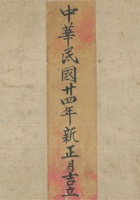 中華民國廿四年新正月吉立